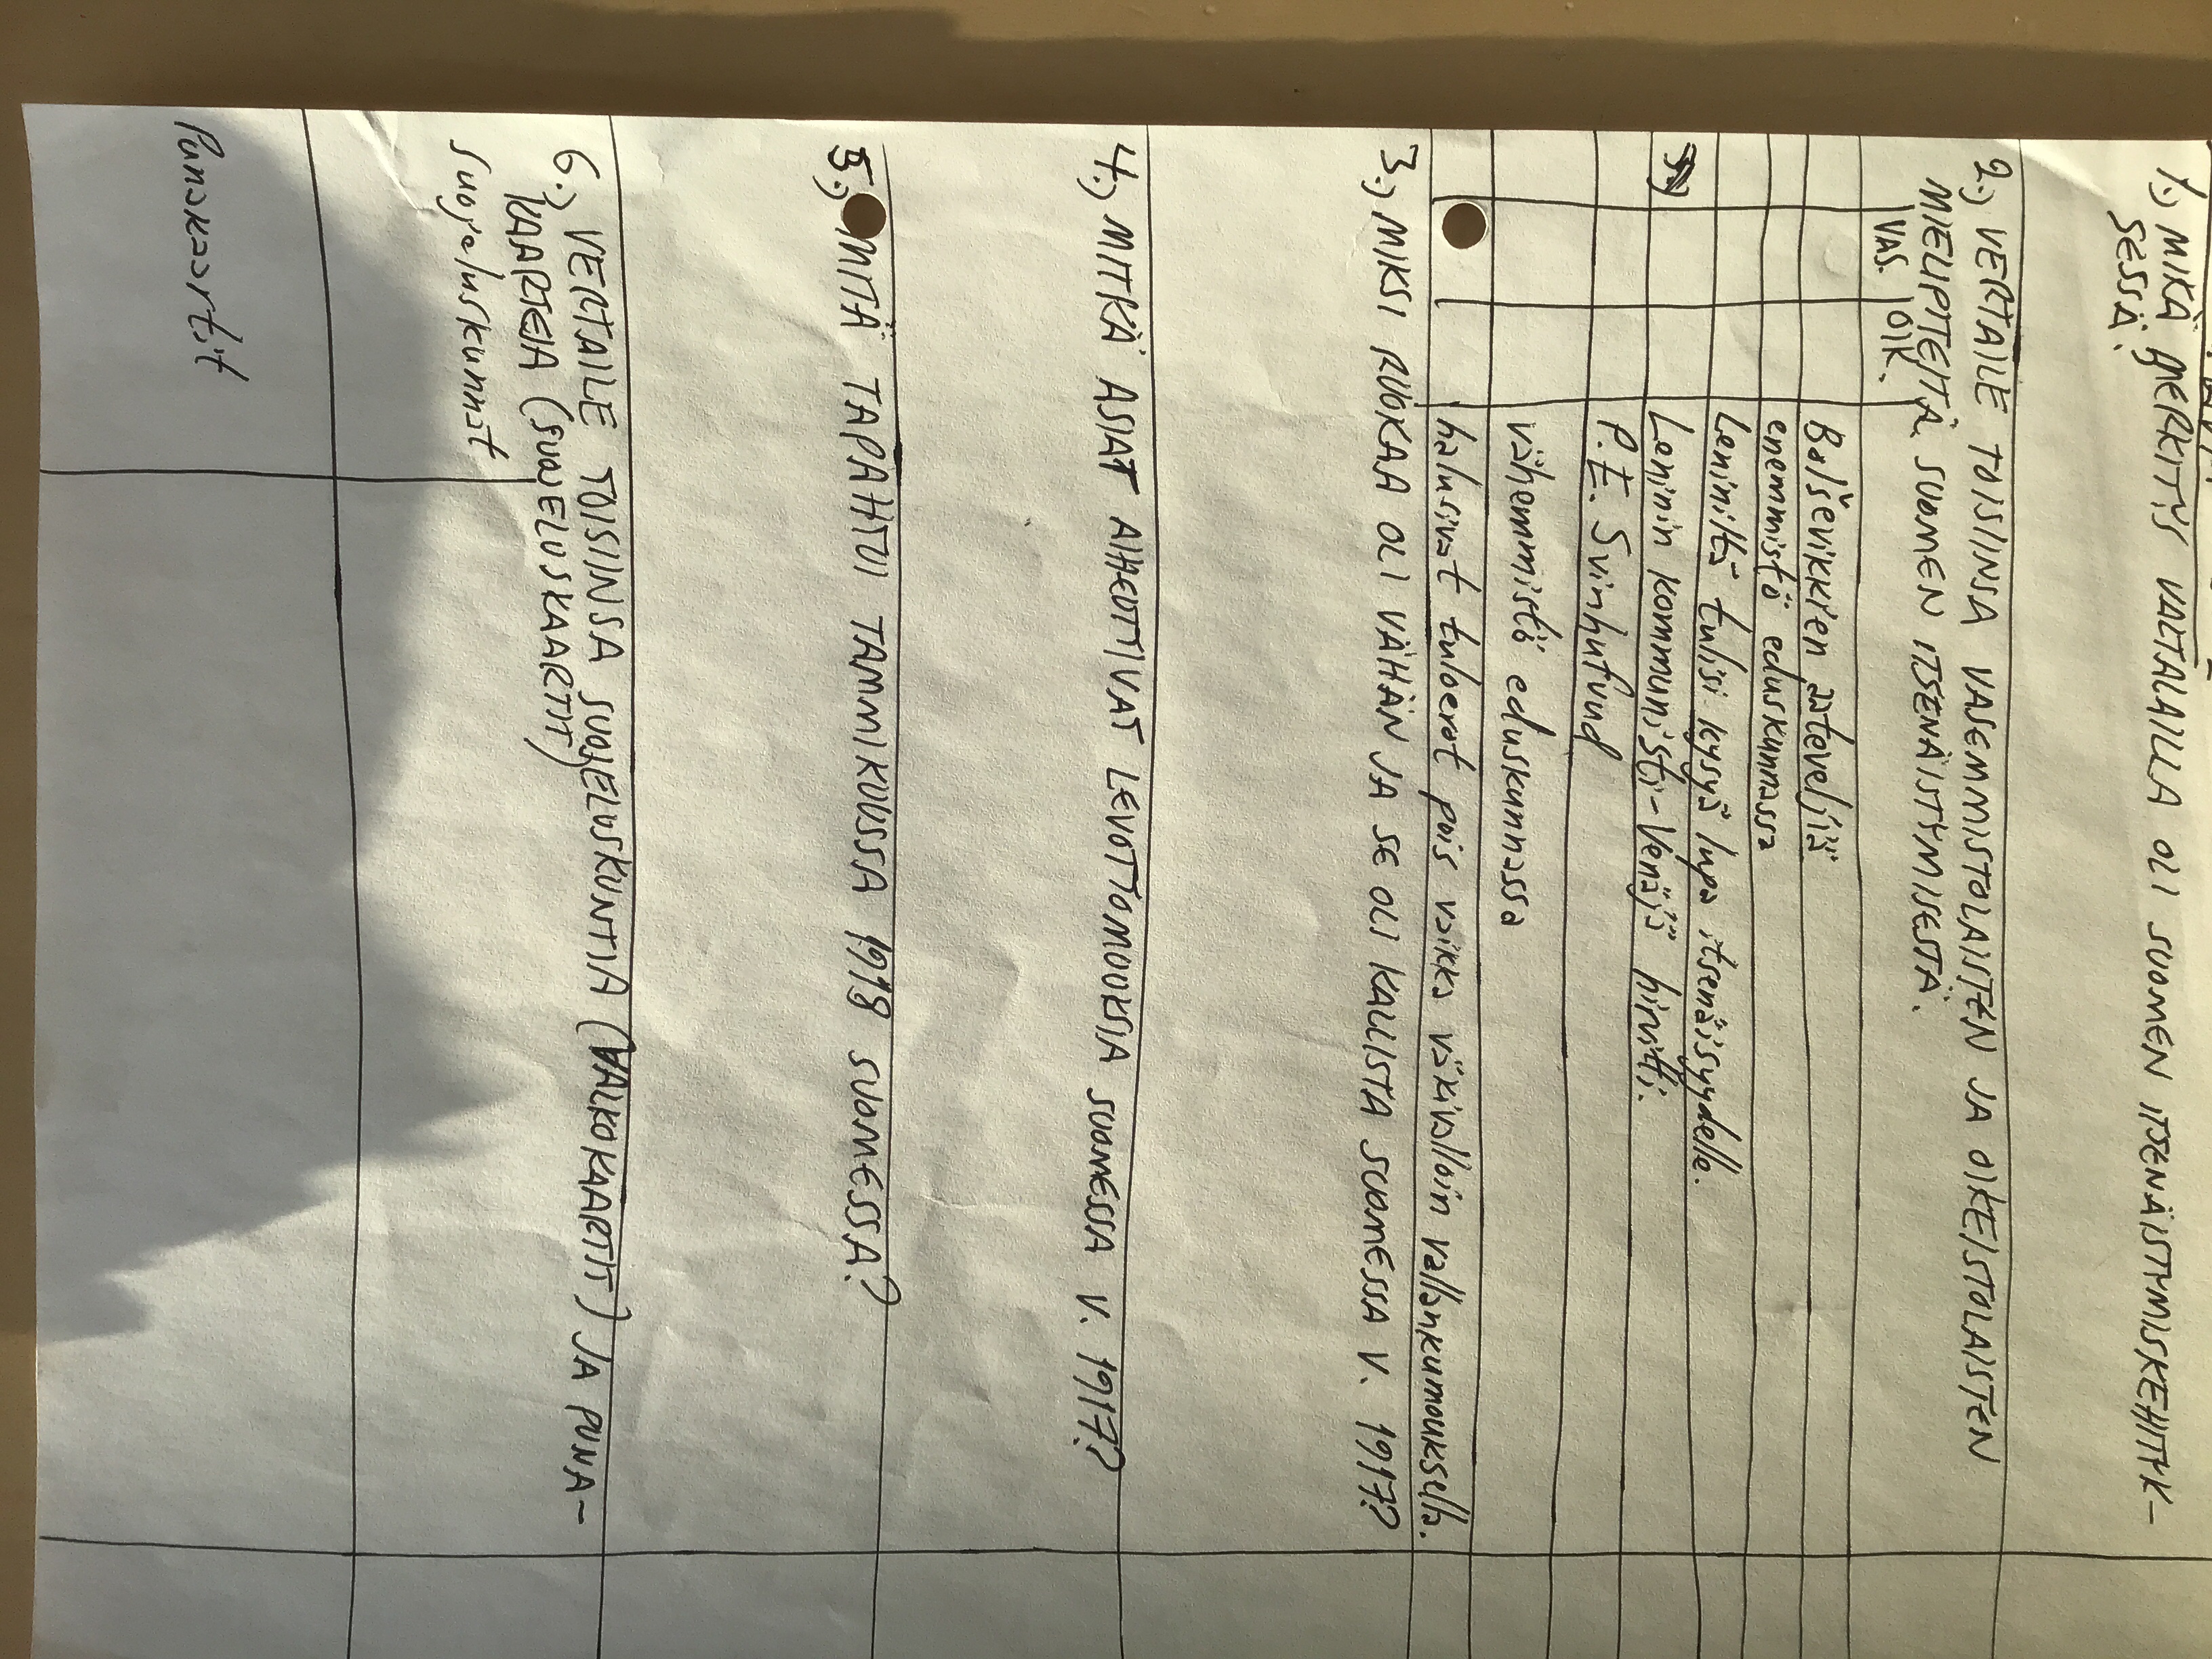 1.) MIKÄ MERKITYS VALTALAILLA OLI SUOMEN ITSENÄISTYMISKEHITYK-
SESSÄ.
2.) VERTAILE TOISIINSA VASEMMISTOLAISTEN JA OIKEISTOLAISTEN
MIELIPITEITÄ SUOMEN ITSENÄISTYMISESTÄ.
VAS. OIK.
Bolševikkien ateveljiä
enemmistö eduskunnassa
Leniniltä tulisi kysyä lupa itsenäisyydelle.
Leninin kommunisti-Venäjä hirvitti.
P.E. Svinhufvud
vähemmistö eduskunnassa
halusivat tuloerot pois vaikka väkivalloin vallankumouksella.
3.) MIKSI RUOKAA OLI VÄHÄN JA SE OLI KALLISTA SUOMESSA V. 1917?
4.) MITKÄ ASIAT AIHEUTTIVAT LEVOTTOMUUKSIA SUOMESSA V. 1917?
5.) MITÄ TAPAHTUI TAMMIKUUSSA 1918 SUOMESSA?
6.) VERTAILE TOISIINSA SUOJELUSKUNTIA (VALKOKAARTIT) JA PUNA-
KAARTEJA (SUOJELUSKAARTIT)
Suojeluskunnat
Punakaartit